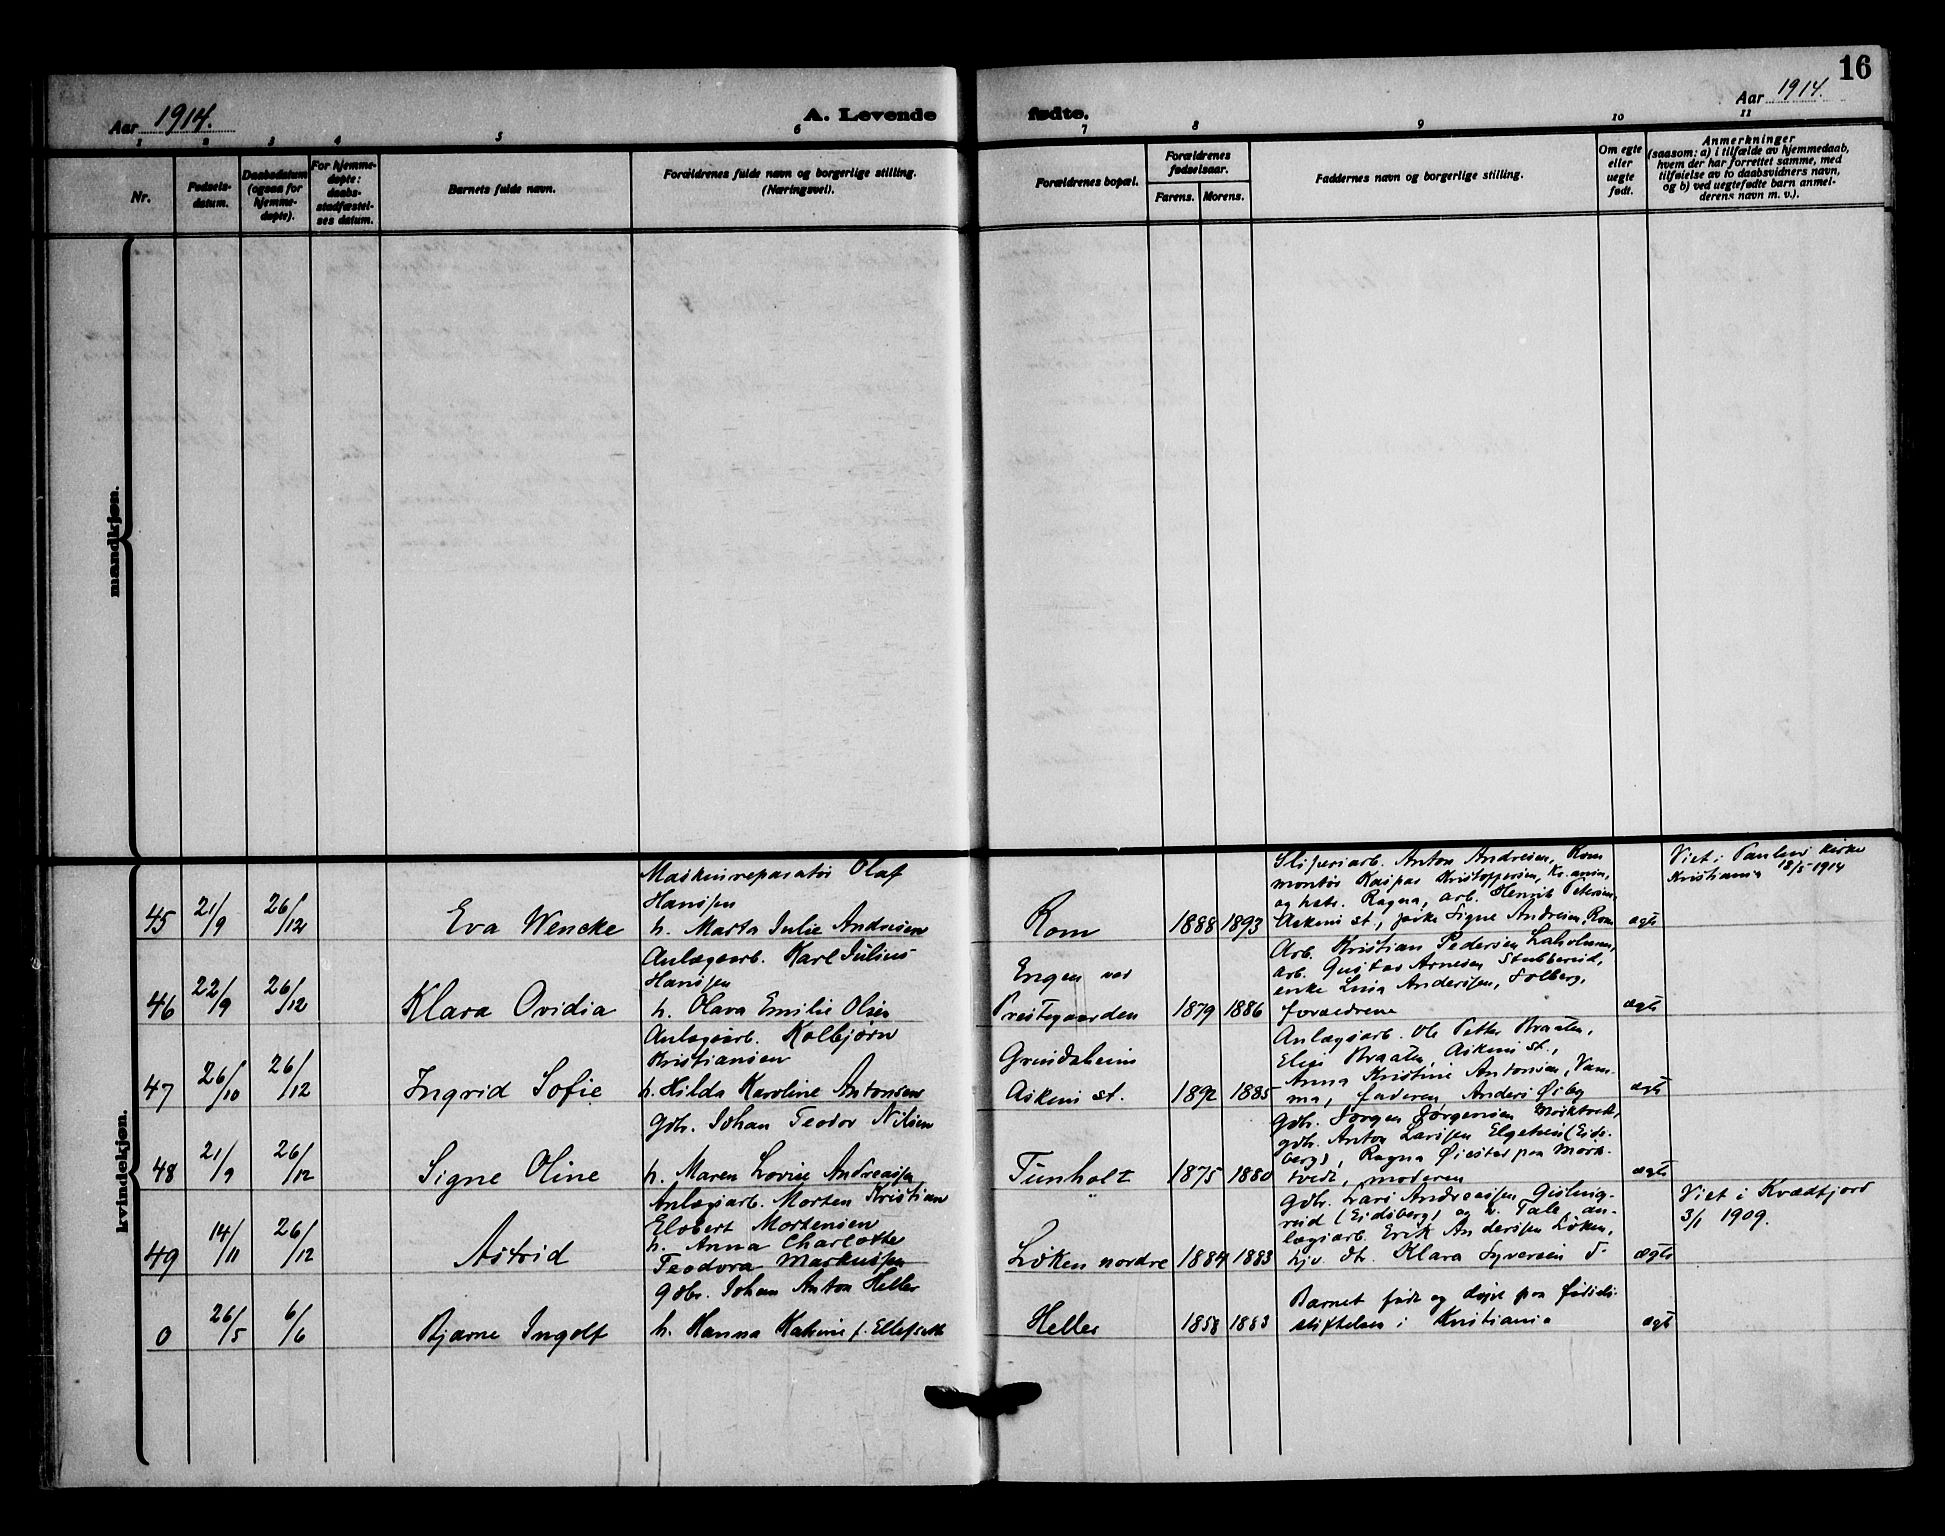 16
Aar 1914.
A. Levende fødte.
Aar 1914.
1 2 3 4 5 6 7 8 9 10 11
Nr.
Fødsels-
datum.
Daabsdatum
(ogsaa for
hjemme-
døpte).
For hjemme-
døpte:
daabs-
stadfæstel-
ses datum.
Barnets fulde navn.
Forældrenes fulde navn og borgerlige stilling.
(Næringsvei).
Forældrenes bopæl.
Forældrenes
fødselsaar.
Farens. Morens.
Faddernes navn og borgerlige stilling.
Om egte
eller
uegte
født.
Anmerkninger
(saasom: a) i tilfælde av hjemmedaab,
hvem der har forrettet samme, med
tilføielse av to daabsvidners navn,
og b) ved uegtefødte barn anmel-
derens navn m. v.).
mandkjøn.
kvindekjøn.
45 21/9 26/12 Eva Wencke
Maskinreparatør Olaf
Hanssen
h. Marta Julie Andresen
Rom 1888 1893
Sliperiarb. Anton Andresen, Rom
montør Kaspar Kristoffersen, Kr.ania,
og hstr. Ragna, arb. Henrik Petersen,
Askim st., pike Signe Andresen, Rom
egte
Viet i Paulus kirke
Kristiania 18/5 1914
46 22/9 26/12 Klara Ovidia
Anlægsarb. Karl Julius
Hanssen
h. Olava Emilie Olsen
Engen ved
Prestegaarden 1879 1886
Arb. Kristian Pedersen Laholmen,
arb. Gustav Arnesen Stubberud,
enke Lina Anderssen, Solberg,
forældrene
ægte
47 26/10 26/12 Ingrid Sofie
Anlægsarb. Kolbjørn
Kristiansen
h. Hilda Karoline Antonsen
Grindsheim
Askim st. 1892 1885
Anlægsarb. Ole Petter Braaten,
Elise Braaten, Askim st.,
Anna Kristine Antonsen, Vam-
ma, faderen, Anders Øiby
ægte
48 21/9 26/12 Signe Oline
Gdbr. Johan Teodor Nilsen
h. Maren Lovise Andreassen
Funholt 1875 1880
Gdbr. Jørgen Jørgensen Mørktvedt,
gdbr. Anton Larssen Elgetun (Eids-
berg), Ragna Øiestad paa Mørk-
tvedt, moderen
ægte
49 14/11 26/12 Astrid
Anlægsarb. Morten Kristian
Elobert Mortensen
h. Anna Charlotte
Teodora Markussen
Løken nordre 1884 1883
Gdbr. Lars Andreassen Gisling-
rud (Eidsberg) og h. Tale, an-
lægsarb. Erik Anderssen Løken,
hjv. dtr. Klara Syversen
ægte
Viet i Kvædfjord
3/1 1909.
0 26/5 6/6 Bjarne Ingolf
Gdbr. Johan Anton Heller
h. Hanna Katrine f. Ellefsæth
Heller 1858 1883
Barnet født og døpt paa fødsels-
stiftelsen i Kristiania
ægte